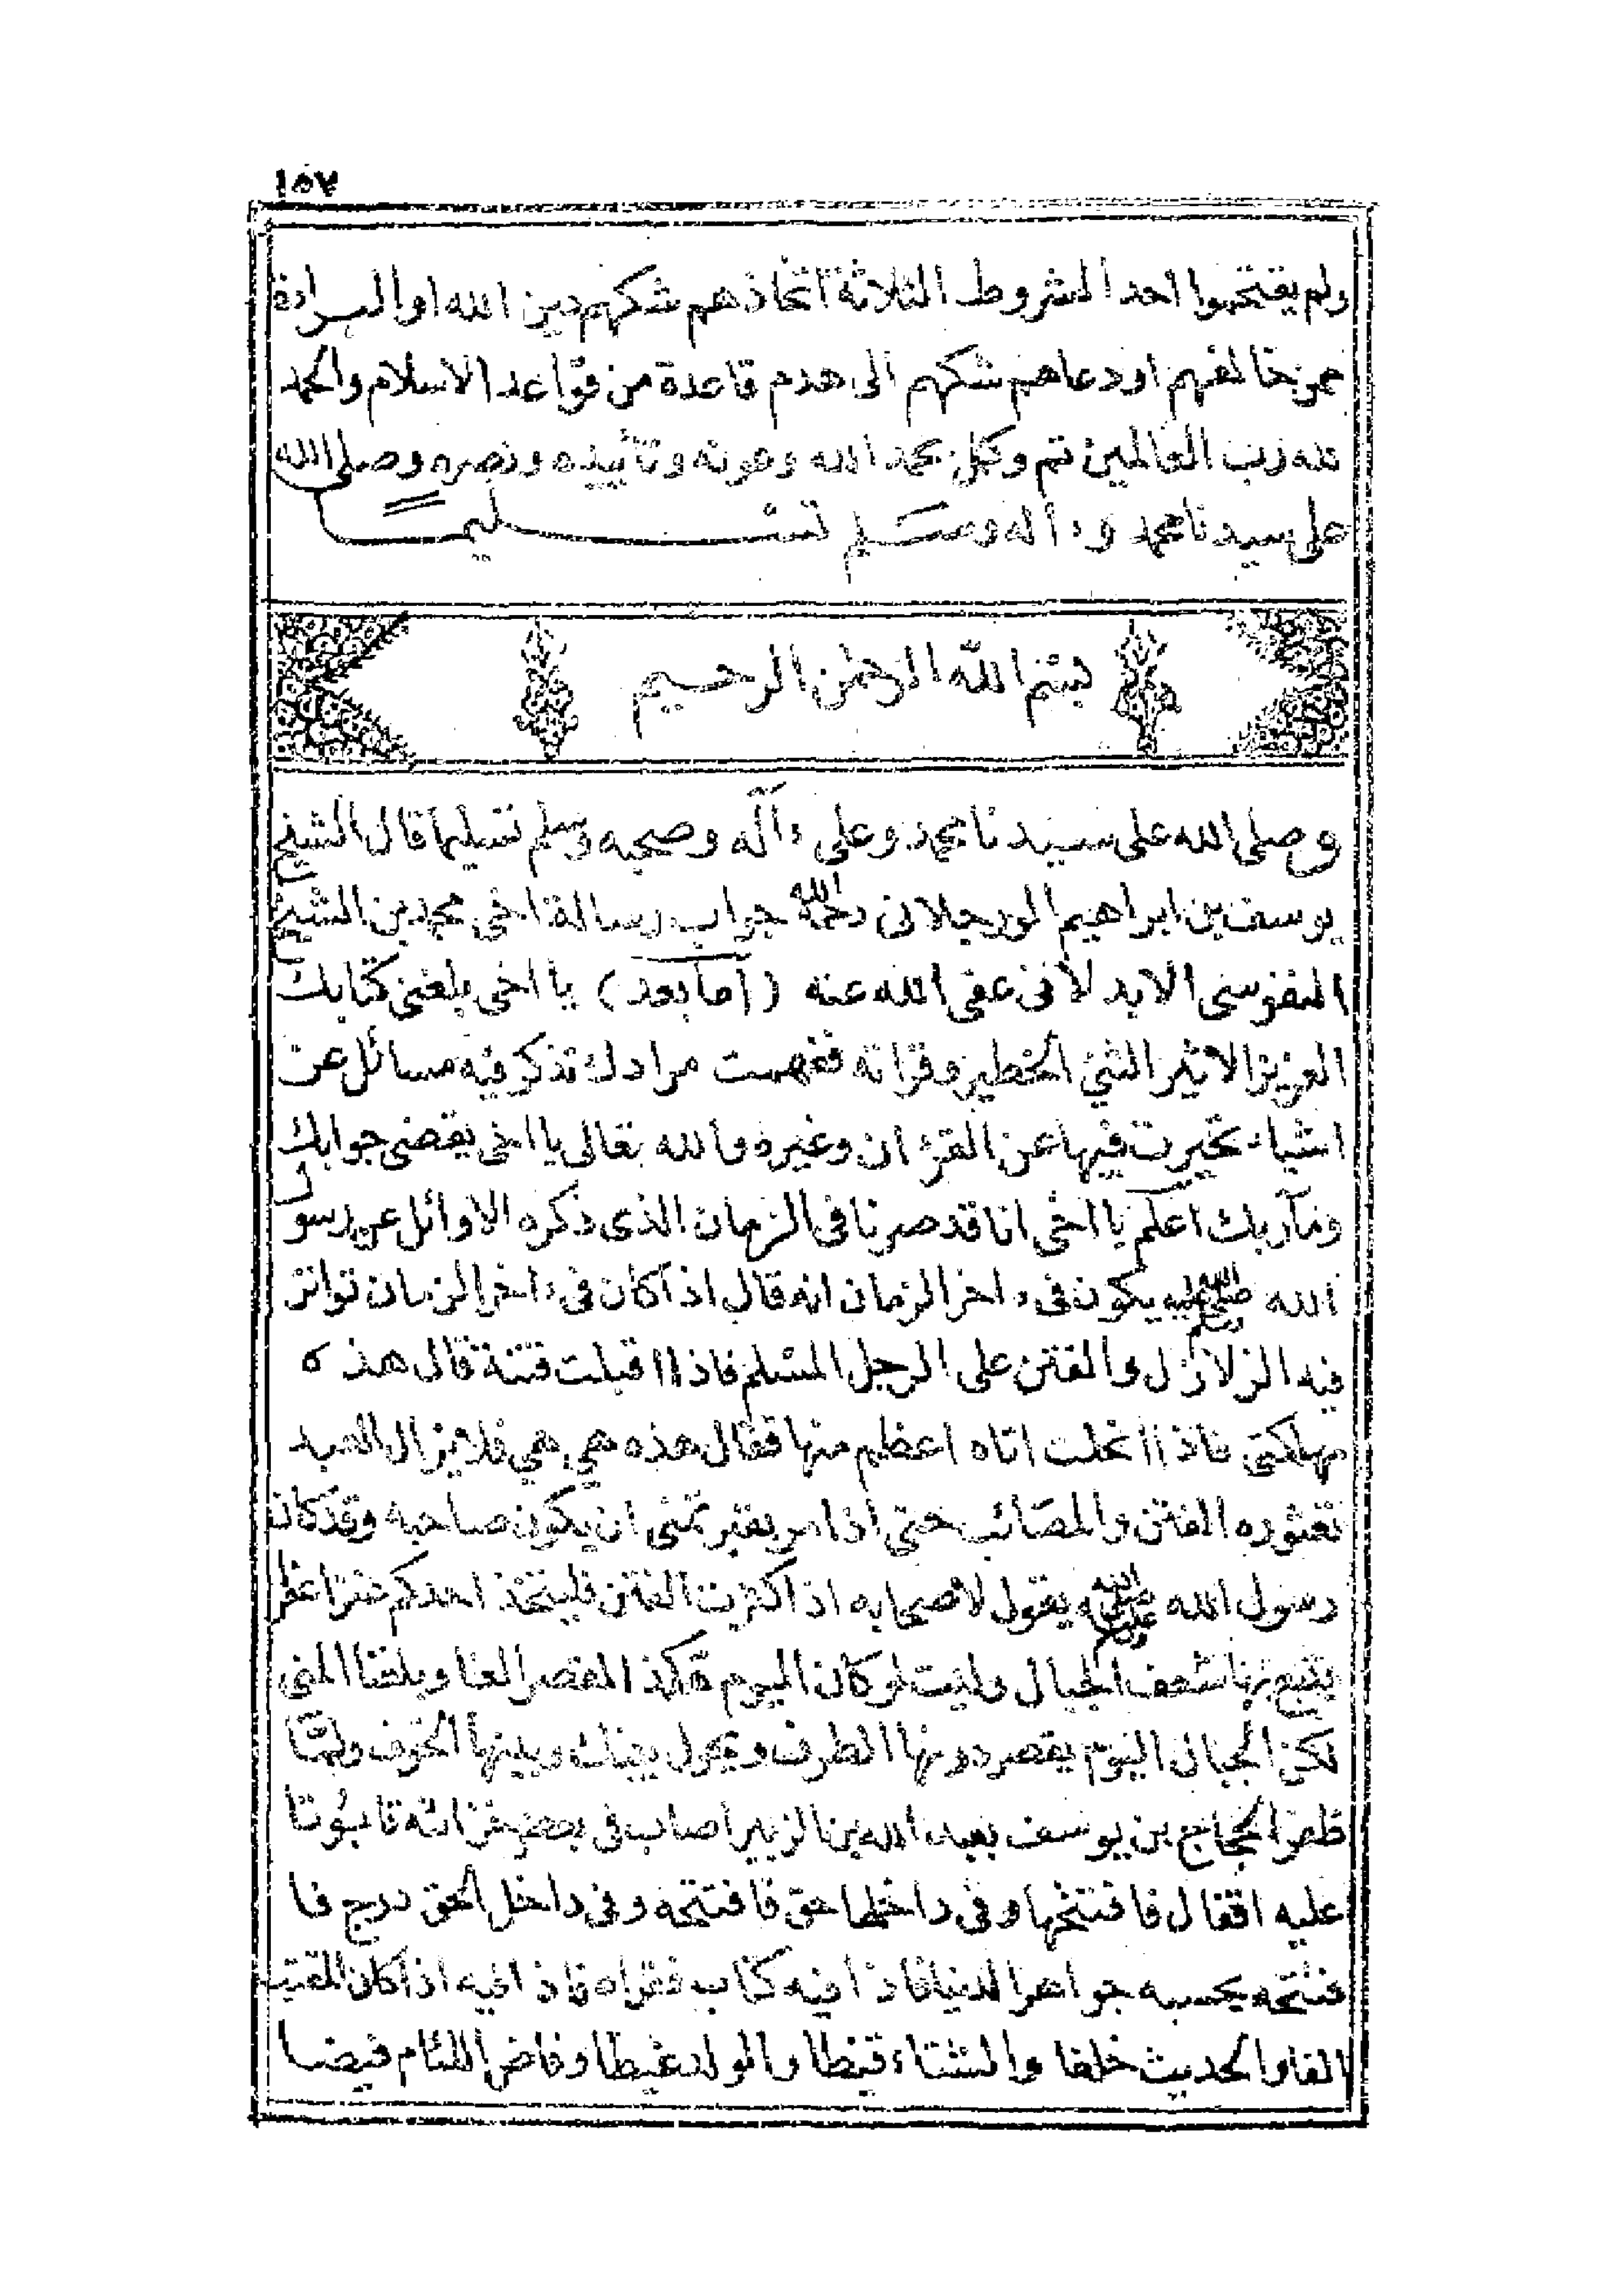 ١٥٧
ولم يقتحموا احد الشروط الثلاثة اتخاذهم شكهم دين الله او البراءة
ممن خالفهم او دعاهم شكهم الى هدم قاعدة من قواعد الاسلام والحمد
لله رب العالمين تم وكمل بحمد الله وعونه وتأييده ونصره وصلى الله
على سيدنا محمد وءاله وسلم تسليما
بسم الله الرحمن الرحيم
وصلى الله على سيدنا محمد وعلى ءاله وصحبه وسلم تسليما قال الشيخ
يوسف بن ابراهيم الورجلانى رحمه الله جواب رسالة اخى محمد بن الشيخ
النفوسى الابدلانى عفى الله عنه (اما بعد) يا اخى بلغنى كتابك
العزيز الاثير الشئ الخطير وقراته ففهمت مرادك تذكر فيه مسائل عن
اشياء تحيرت فيها عن القرءان وغيره والله تعالى يا اخى يقضى جوابك
ومآربك اعلم يا اخى انا قد صرنا فى الزمان الذى ذكره الاوائل عن رسول
الله صلى الله عليه وسلم يكون فى ءاخر الزمان انه قال اذا كان فى ءاخر الزمان تواتر
فيه الزلازل والفتن على الرجل المسلم فاذا اقبلت فتنة قال هذه
مهلكتى فاذا انجلت اتاه اعظم منها فقال هذه هى هى فلا يزال العبد
تعثوره الفتن والمصائب حتى اذا مر بقبر تمنى ان يكون صاحبه وقد كان
رسول الله صلى الله عليه وسلم يقول لاصحابه اذا كثرت الفتن فليتخذ احدكم عنزا عفر
يتبع بها شعف الجبال وليت لو كان اليوم هكذا لقصر العنا وبلغنا المنى
لكن الجبال اليوم يقصر دونها الطرف ويحول بينك وبينها الخوف ولما
ظفر الحجاج بن يوسف بعبد الله بن الزبير اصاب فى بعض خزائنه تابوتا
عليه اقفال فافتتحها وفى داخلها حق فافتتحه وفى داخل الحق درج فا
فتتحه يحسبه جواهر الدنيا فاذا فيه كتاب فقراه فاذا فيه اذا كان المقيت
الفا والحديث خلفا والشتاء قيظا والولد غيظا وفاض اللئام فيضا